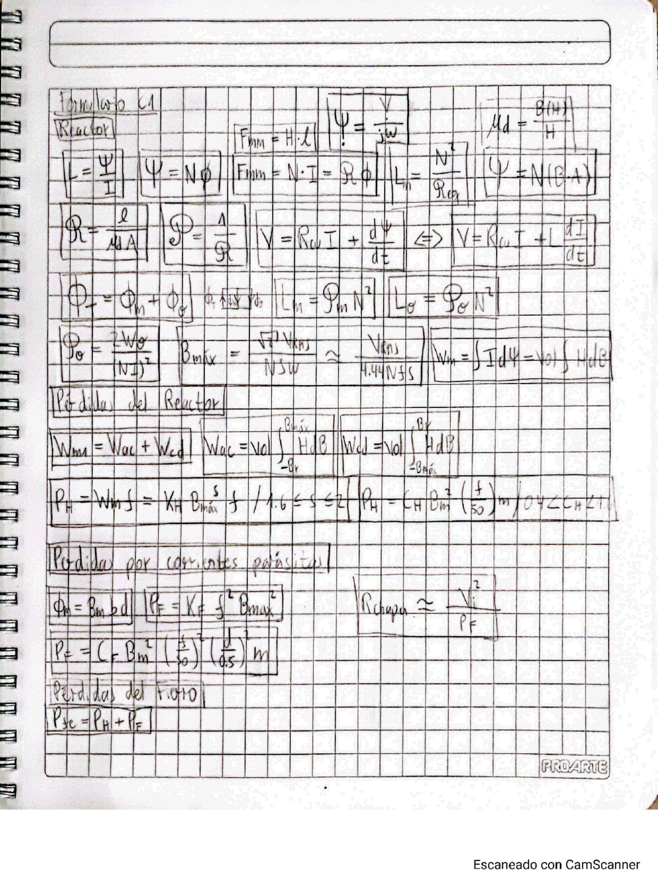 Formulario C1
Reactor
Fmm = H·l
Ψ = V / jω
μd = B(H) / H
L = Ψ / I
Ψ = Nϕ
Fmm = N·I = ℛϕ
Lm = N² / ℛeq
Ψ = N(B·A)
ℛ = l / μA
𝒫 = 1 / ℛ
V = Rcu I + dΨ/dt ⇔ V = Rcu I + L dI/dt
ϕT = ϕm + ϕσ
Lm = 𝒫m N²
Lσ = 𝒫σ N²
𝒫σ = 2Wσ / (NI)²
Bmáx = √2 VRMS / NSW ≈ VRMS / 4.44NfS
Wm = ∫ I dΨ = Vol ∫ HdB
Pérdidas del Reactor
Wm = Wac + Wcd
Wac = Vol ∫ -Br Bmáx HdB
Wcd = Vol ∫ -Bmáx Br HdB
PH = Wm f = KH Bmáx^s f / 1.6 ≤ s ≤ 2
PH = CH Bm² (f/50) m
Perdidas por corrientes parásitas
ϕm = Bm b d
PF = KF f² Bmax²
Rchapa ≈ Vi² / PF
PF = CF Bm² (f/50)² (d/0.5)² m
Perdidas del Fierro
= PH + PF
PROARTE
Escaneado con CamScanner